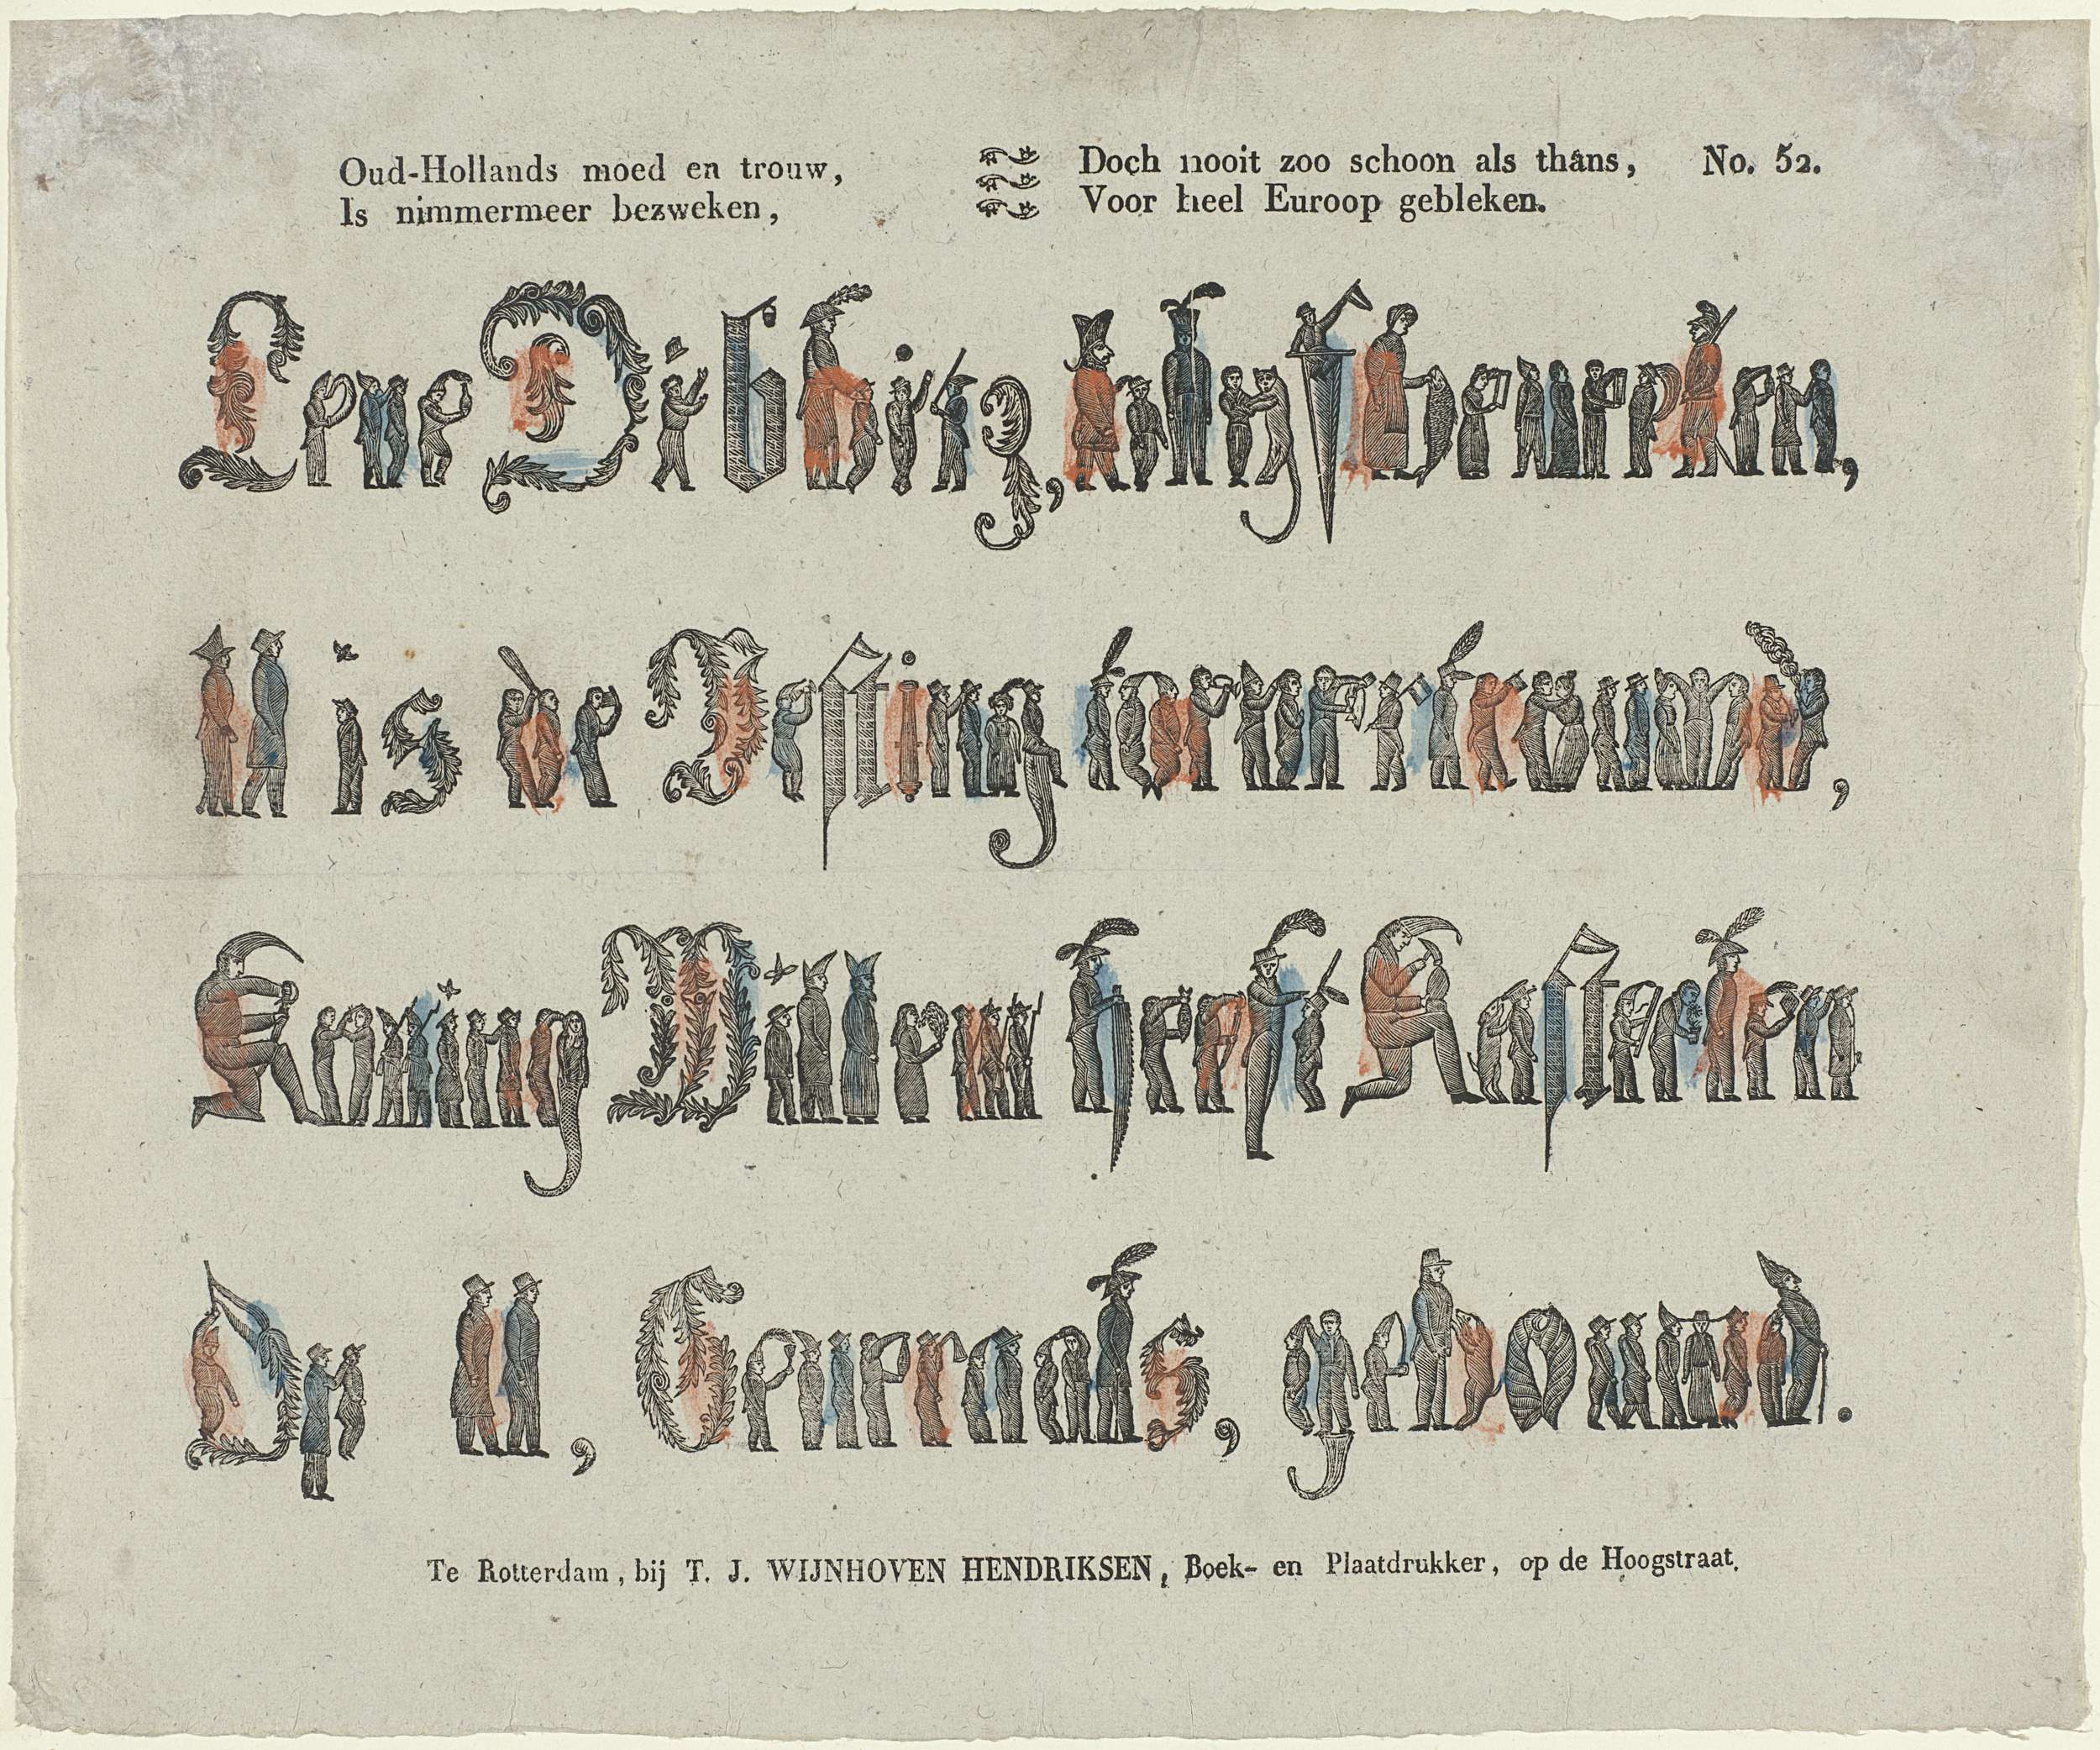 Oud-Hollands moed en trouw,
Is nimmermeer bezweken,
Doch nooit zoo schoon als thans,
Voor heel Euroop gebleken.
No. 52.
Leve Dibbitz, blyf bevelen,
U is de Vesting toevertrouwd,
Koning Willem heeft Kasteelen
Op U, Generaals, gebouwd.
Te Rotterdam, bij T. J. WIJNHOVEN HENDRIKSEN, Boek- en Plaatdrukker, op de Hoogstraat.